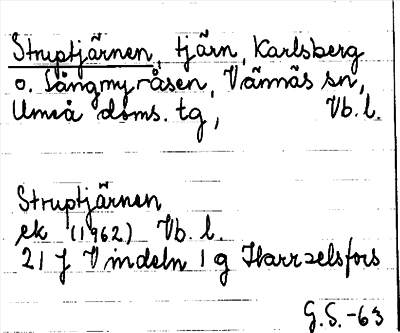 Struptjärnen, tjärn, Karlsberg
o. Långmyråsen, Vännäs sn,
Umeå doms. tg, Vb. l.
Struptjärnen
ek (1962) Vb. l.
21 J Vindeln 1 g Harrselsfors
G.S.-63